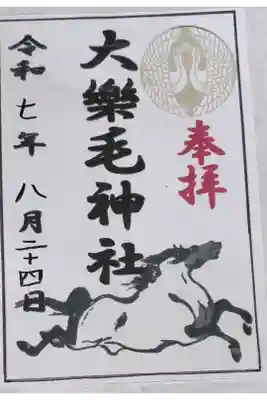 奉拝
大樂毛神社
令和七年 八月二十四日